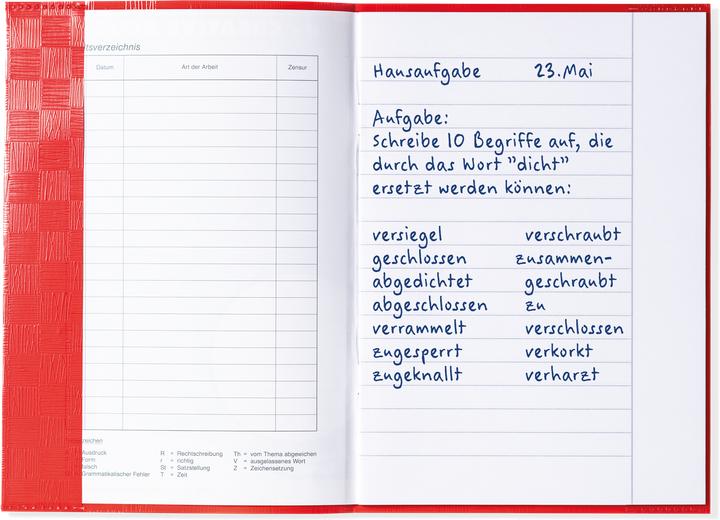 itsverzeichnis
Datum Art der Arbeit Zensur
Ausdruck R = Rechtschreibung Th = vom Thema abgewichen
Form r = richtig V = ausgelassenes Wort
falsch St = Satzstellung Z = Zeichensetzung
Grammatikalischer Fehler T = Zeit
Hausaufgabe 23. Mai
Aufgabe:
Schreibe 10 Begriffe auf, die
durch das Wort "dicht"
ersetzt werden können:
versiegel verschraubt
geschlossen zusammen-
abgedichtet geschraubt
abgeschlossen zu
verrammelt verschlossen
zugesperrt verkorkt
zugeknallt verharzt